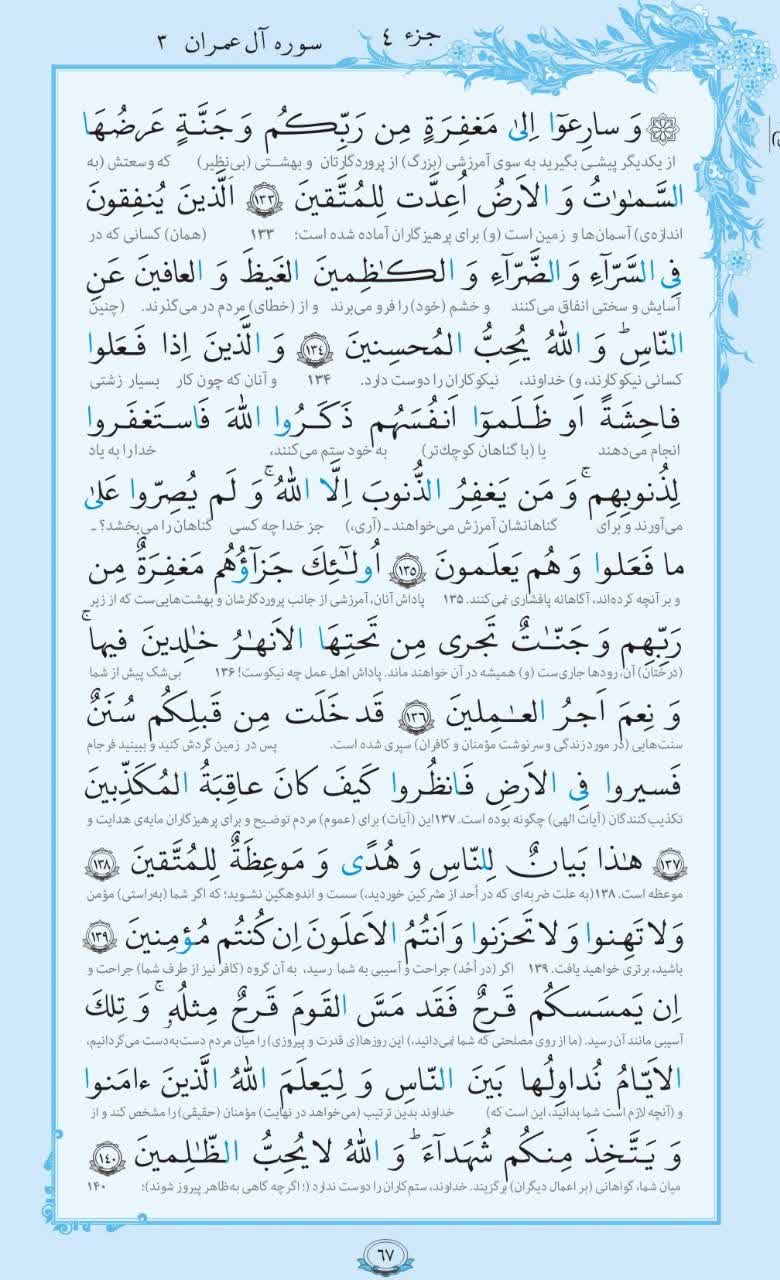 جزء ٤
سوره آل عمران ٣
وَ سارِعوٓا اِلیٰ مَغفِرَةٍ مِن رَبِّكُم وَ جَنَّةٍ عَرضُهَا
از یکدیگر پیشی بگیرید به سوی آمرزشی (بزرگ) از پروردگارتان و بهشتی (بی‌نظیر) که وسعتش (به
السَّمٰوٰتُ وَ الاَرضُ اُعِدَّت لِلمُتَّقینَ ١٣٣ اَلَّذینَ یُنفِقونَ
اندازه‌ی) آسمان‌ها و زمین است (و) برای پرهیزگاران آماده شده است؛ ۱۳۳ (همان) کسانی که در
فِی السَّرّآءِ وَ الضَّرّآءِ وَ الكـٰظِمینَ الغَیظَ وَ العافینَ عَنِ
آسایش و سختی انفاق می‌کنند و خشم (خود) را فرو می‌برند و از (خطای) مردم در می‌گذرند. (چنین
النّاسِ ؕ وَ اللّٰهُ یُحِبُّ المُحسِنینَ ١٣٤ وَ الَّذینَ اِذا فَعَلوا
کسانی نیکوکارند، و) خداوند، نیکوکاران را دوست دارد. ۱۳۴ و آنان که چون کار بسیار زشتی
فاحِشَةً اَو ظَلَموٓا اَنفُسَهُم ذَكَرُوا اللّٰهَ فَاستَغفَروا
انجام می‌دهند یا (با گناهان کوچک‌تر) به خود ستم می‌کنند، خدا را به یاد
لِذُنوبِهِم ۚ وَ مَن یَغفِرُ الذُّنوبَ اِلَّا اللّٰهُ ۚ وَ لَم یُصِرّوا عَلیٰ
می‌آورند و برای گناهانشان آمرزش می‌خواهند ـ (آری،) جز خدا چه کسی گناهان را می‌بخشد؟ ـ
ما فَعَلوا وَ هُم یَعلَمونَ ١٣٥ اُولـٰٓئِكَ جَزآؤُهُم مَغفِرَةٌ مِن
و بر آنچه کرده‌اند، آگاهانه پافشاری نمی‌کنند. ۱۳۵ پاداش آنان، آمرزشی از جانب پروردگارشان و بهشت‌هایی‌ست که از زیر
رَبِّهِم وَ جَنّـٰتٌ تَجری مِن تَحتِهَا الاَنهـٰرُ خـٰلِدینَ فیها ۚ
(درختان) آن، رودها جاری‌ست (و) همیشه در آن خواهند ماند. پاداش اهل عمل چه نیکوست! ۱۳۶ بی‌شک پیش از شما
وَ نِعمَ اَجرُ العـٰمِلینَ ١٣٦ قَد خَلَت مِن قَبلِكُم سُنَنٌ
سنت‌هایی (در مورد زندگی و سرنوشت مؤمنان و کافران) سپری شده است. پس در زمین گردش کنید و ببینید فرجام
فَسیروا فِی الاَرضِ فَانظُروا كَیفَ كانَ عاقِبَةُ المُكَذِّبینَ
تکذیب‌کنندگان (آیات الهی) چگونه بوده است. ۱۳۷ این (آیات) برای (عموم) مردم توضیح و برای پرهیزگاران مایه‌ی هدایت و
١٣٧ هـٰذا بَیانٌ لِلنّاسِ وَ هُدًی وَ مَوعِظَةٌ لِلمُتَّقینَ ١٣٨
موعظه است. ۱۳۸ (به علت ضربه‌ای که در اُحد از مشرکین خوردید،) سست و اندوهگین نشوید؛ که اگر شما (به‌راستی) مؤمن
وَ لا تَهِنوا وَ لا تَحزَنوا وَ اَنتُمُ الاَعلَونَ اِن كُنتُم مُؤمِنینَ ١٣٩
باشید، برتری خواهید یافت. ۱۳۹ اگر (در اُحُد) جراحت و آسیبی به شما رسید، به آن گروه (کافر نیز از طرف شما) جراحت و
اِن یَمسَسكُم قَرحٌ فَقَد مَسَّ القَومَ قَرحٌ مِثلُهٗ ۚ وَ تِلكَ
آسیبی مانند آن رسید. (ما از روی مصلحتی که شما نمی‌دانید،) این روزها(ی قدرت و پیروزی) را میان مردم دست‌به‌دست می‌گردانیم،
الاَیّامُ نُداوِلُها بَینَ النّاسِ وَ لِیَعلَمَ اللّٰهُ الَّذینَ ءامَنوا
و (آنچه لازم است شما بدانید، این است که) خداوند بدین ترتیب (می‌خواهد در نهایت) مؤمنان (حقیقی) را مشخص کند و از
وَ یَتَّخِذَ مِنكُم شُهَدآءَ ؕ وَ اللّٰهُ لا یُحِبُّ الظّـٰلِمینَ ١٤٠
میان شما، گواهانی (بر اعمال دیگران) برگزیند. خداوند، ستم‌کاران را دوست ندارد (؛ اگرچه گاهی به‌ظاهر پیروز شوند)؛ ۱۴۰
٦٧